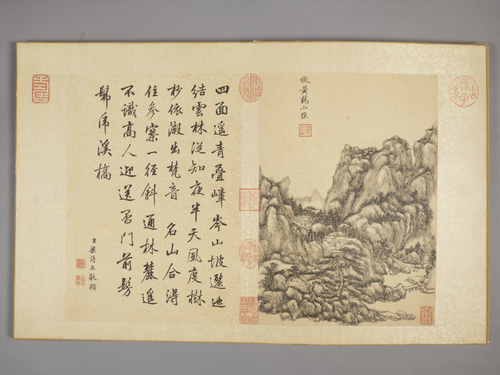 倣黃鶴山樵
四面遙青疊嶂岑山坡邐迤
結雲林從知夜半天風度樹
杪依微出梵音 名山合得
住參寥一徑斜通林麓遙
不識高人迎送否門前髣
髴虎溪橋
臣梁詩正敬題